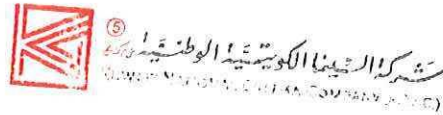 ⑤
شركة السينما الكويتية الوطنية
KUWAIT NATIONAL CINEMA COMPANY